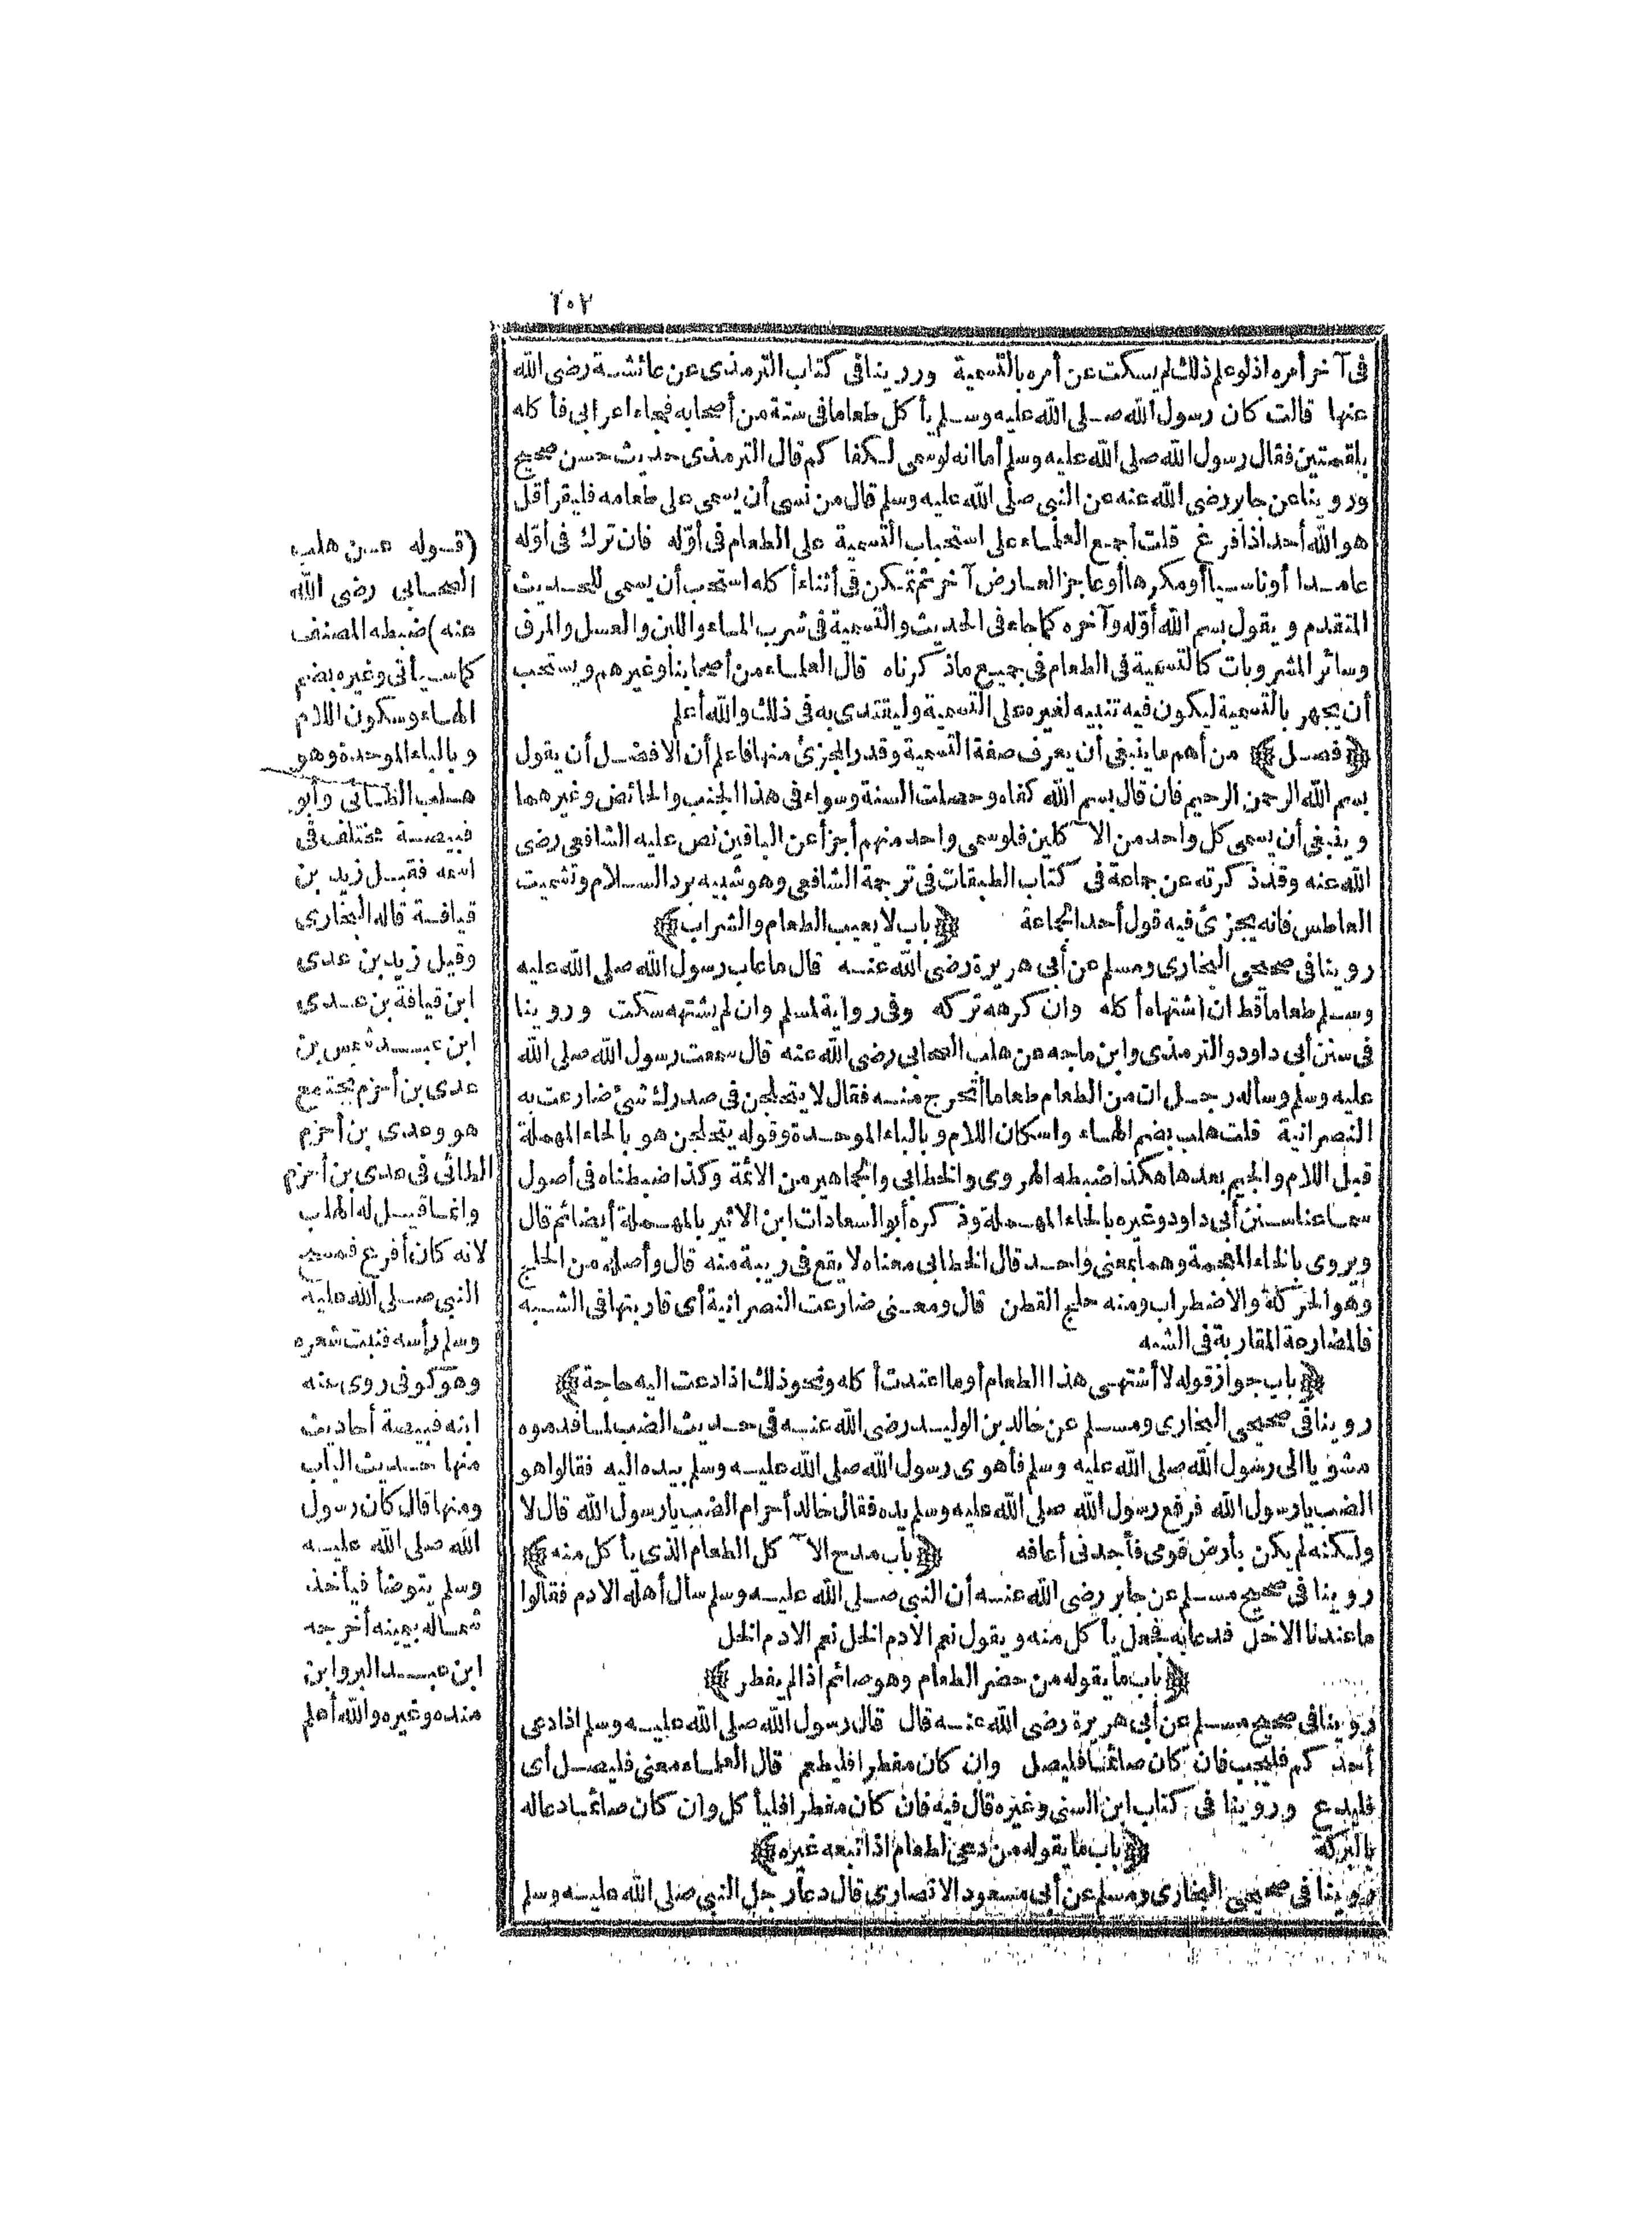 ٢٠٢
فى آخر أمره اذ لو علم ذلك لم يسكت عن أمره بالتسمية وروينا فى كتاب الترمذى عن عائشة رضى الله
عنها قالت كان رسول الله صلى الله عليه وسلم يأكل طعاما فى ستة من أصحابه فجاء اعرابى فأكله
بلقمتين فقال رسول الله صلى الله عليه وسلم أما انه لوسمى لكفاكم قال الترمذى حديث حسن صحيح
وروينا عن جابر رضى الله عنه عن النبى صلى الله عليه وسلم قال من نسى أن يسمى على طعامه فليقرأ قل
هو الله أحد اذا فرغ قلت أجمع العلماء على استحباب التسمية على الطعام فى أوّله فان ترك فى أوّله
عامدا أوناسيا أومكرها أوعاجزا لعارض آخر ثم تمكن فى أثناء أكله استحب أن يسمى للحديث
المتقدم ويقول بسم الله أوّله وآخره كما جاء فى الحديث والتسمية فى شرب الماء واللبن والعسل والمرق
وسائر المشروبات كالتسمية فى الطعام فى جميع ماذكرناه قال العلماء من أصحابنا وغيرهم ويستحب
أن يجهر بالتسمية ليكون فيه تنبيه لغيره على التسمية وليقتدى به فى ذلك والله أعلم
﴿فصل﴾ من أهم ما ينبغى أن يعرف صفة التسمية وقدر المجزئ منها فاعلم أن الافضل أن يقول
بسم الله الرحمن الرحيم فان قال بسم الله كفاه وحصلت السنة وسواء فى هذا الجنب والحائض وغيرهما
وينبغى أن يسمى كل واحد من الآكلين فلوسمى واحد منهم أجزأ عن الباقين نص عليه الشافعى رضى
الله عنه وقد ذكرته عن جماعة فى كتاب الطبقات فى ترجمة الشافعى وهو شبيه برد السلام وتشميت
العاطس فانه يجزئ فيه قول أحد الجماعة ﴿باب لا يعيب الطعام والشراب﴾
روينا فى صحيحى البخارى ومسلم عن أبى هريرة رضى الله عنه قال ما عاب رسول الله صلى الله عليه
وسلم طعاما قط ان اشتهاه أكله وان كرهه تركه وفى رواية لمسلم وان لم يشتهه سكت وروينا
فى سنن أبى داود والترمذى وابن ماجه عن هلب الصحابى رضى الله عنه قال سمعت رسول الله صلى الله
عليه وسلم وسأله رجل ان من الطعام طعاما أتحرج منه فقال لا يتحلجن فى صدرك شئ ضارعت به
النصرانية قلت هلب بضم الهاء واسكان اللام وبالباء الموحدة وقوله يتحلجن هو بالحاء المهملة
قبل اللام والجيم بعدها هكذا ضبطه الهروى والخطابى والجماهير من الائمة وكذا ضبطناه فى أصول
سماعنا سنن أبى داود وغيره بالحاء المهملة وذكره أبو السعادات ابن الاثير بالمهملة أيضا ثم قال
ويروى بالخاء المعجمة وهما بمعنى واحد قال الخطابى معناه لا يقع فى ريبة منه قال وأصله من الحلج
وهو الحركة والاضطراب ومنه حلج القطن قال ومعنى ضارعت النصرانية أى قاربتها فى الشبه
فالمضارعة المقاربة فى الشبه
﴿باب جواز قوله لا أشتهى هذا الطعام أوما اعتدت أكله ونحو ذلك اذا دعت اليه حاجة﴾
روينا فى صحيحى البخارى ومسلم عن خالد بن الوليد رضى الله عنه فى حديث الضب لما قدموه
مشويا الى رسول الله صلى الله عليه وسلم فأهوى رسول الله صلى الله عليه وسلم بيده اليه فقالوا هو
الضب يا رسول الله فرفع رسول الله صلى الله عليه وسلم يده فقال خالد أحرام الضب يا رسول الله قال لا
ولكنه لم يكن بأرض قومى فأجدنى أعافه ﴿باب مدح الآكل الطعام الذى يأكل منه﴾
روينا فى صحيح مسلم عن جابر رضى الله عنه أن النبى صلى الله عليه وسلم سأل أهله الادم فقالوا
ما عندنا الا خل فدعا به فجعل يأكل منه ويقول نعم الادم الخل نعم الادم الخل
﴿باب ما يقوله من حضر الطعام وهو صائم اذا لم يفطر﴾
روينا فى صحيح مسلم عن أبى هريرة رضى الله عنه قال قال رسول الله صلى الله عليه وسلم اذا دعى
أحدكم فليجب فان كان صائما فليصل وان كان مفطرا فليطعم قال العلماء معنى فليصل أى
فليدع وروينا فى كتاب ابن السنى وغيره قال فيه فان كان مفطرا فليأكل وان كان صائما دعا له
بالبركة ﴿باب ما يقوله من دعى لطعام اذا تبعه غيره﴾
روينا فى صحيحى البخارى ومسلم عن أبى مسعود الانصارى قال دعا رجل النبى صلى الله عليه وسلم
(قوله عن هلب
الصحابى رضى الله
عنه) ضبطه المصنف
كما سيأتى وغيره بضم
الهاء وسكون اللام
وبالباء الموحدة وهو
هلب الطائى وأبو
قبيصة مختلف فى
اسمه فقيل زيد بن
قيافة قاله البخارى
وقيل زيد بن عدى
ابن قيافة بن عدى
ابن عبد شمس بن
عدى بن أخزم يجتمع
هو وعدى بن أخزم
الطائى فى عدى بن أخزم
وانما قيل له الهلب
لانه كان أقرع فمسح
النبى صلى الله عليه
وسلم رأسه فنبت شعره
وهو كوفى روى عنه
ابنه قبيصة أحاديث
منها حديث الباب
ومنها قال كان رسول
الله صلى الله عليه
وسلم يتوضأ فيأخذ
شماله بيمينه أخرجه
ابن عبد البر وابن
منده وغيره والله أعلم